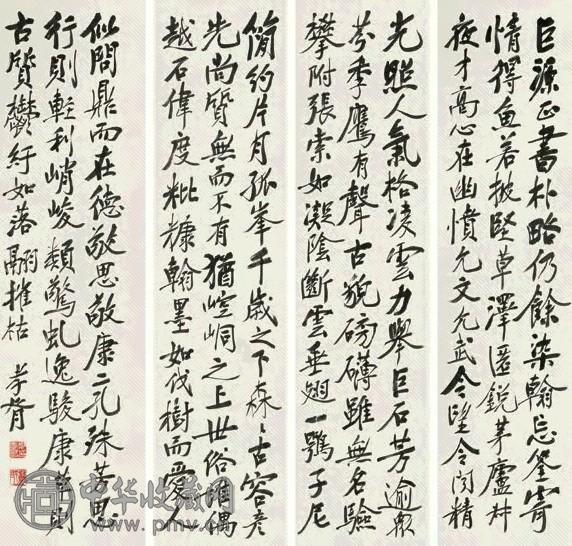 巨源正書朴略仍餘染翰忘筌寄
情得魚若披堅草澤匿銳茅廬叔
夜才高心在幽憤允文允武令望令問精
光照人氣格凌雲力舉巨石芳逾衆
芬季鷹有聲古貌磅礴雖無名驗
攀附張索如凝陰斷雲垂翅一鶚子尼
簡約片月孤峯千歲之下森〻古容彥
先尚質無而不有猶崆峒之上世俗罔偶
越石偉度秕糠翰墨如伐樹而愛人
似問鼎而在德敬思敬康二孔殊芳思
行則輕利峭峻類驚虬逸駿康草則
古質鬱紆如落翮摧枯 孝胥
中华收藏网
www.pmv.cn